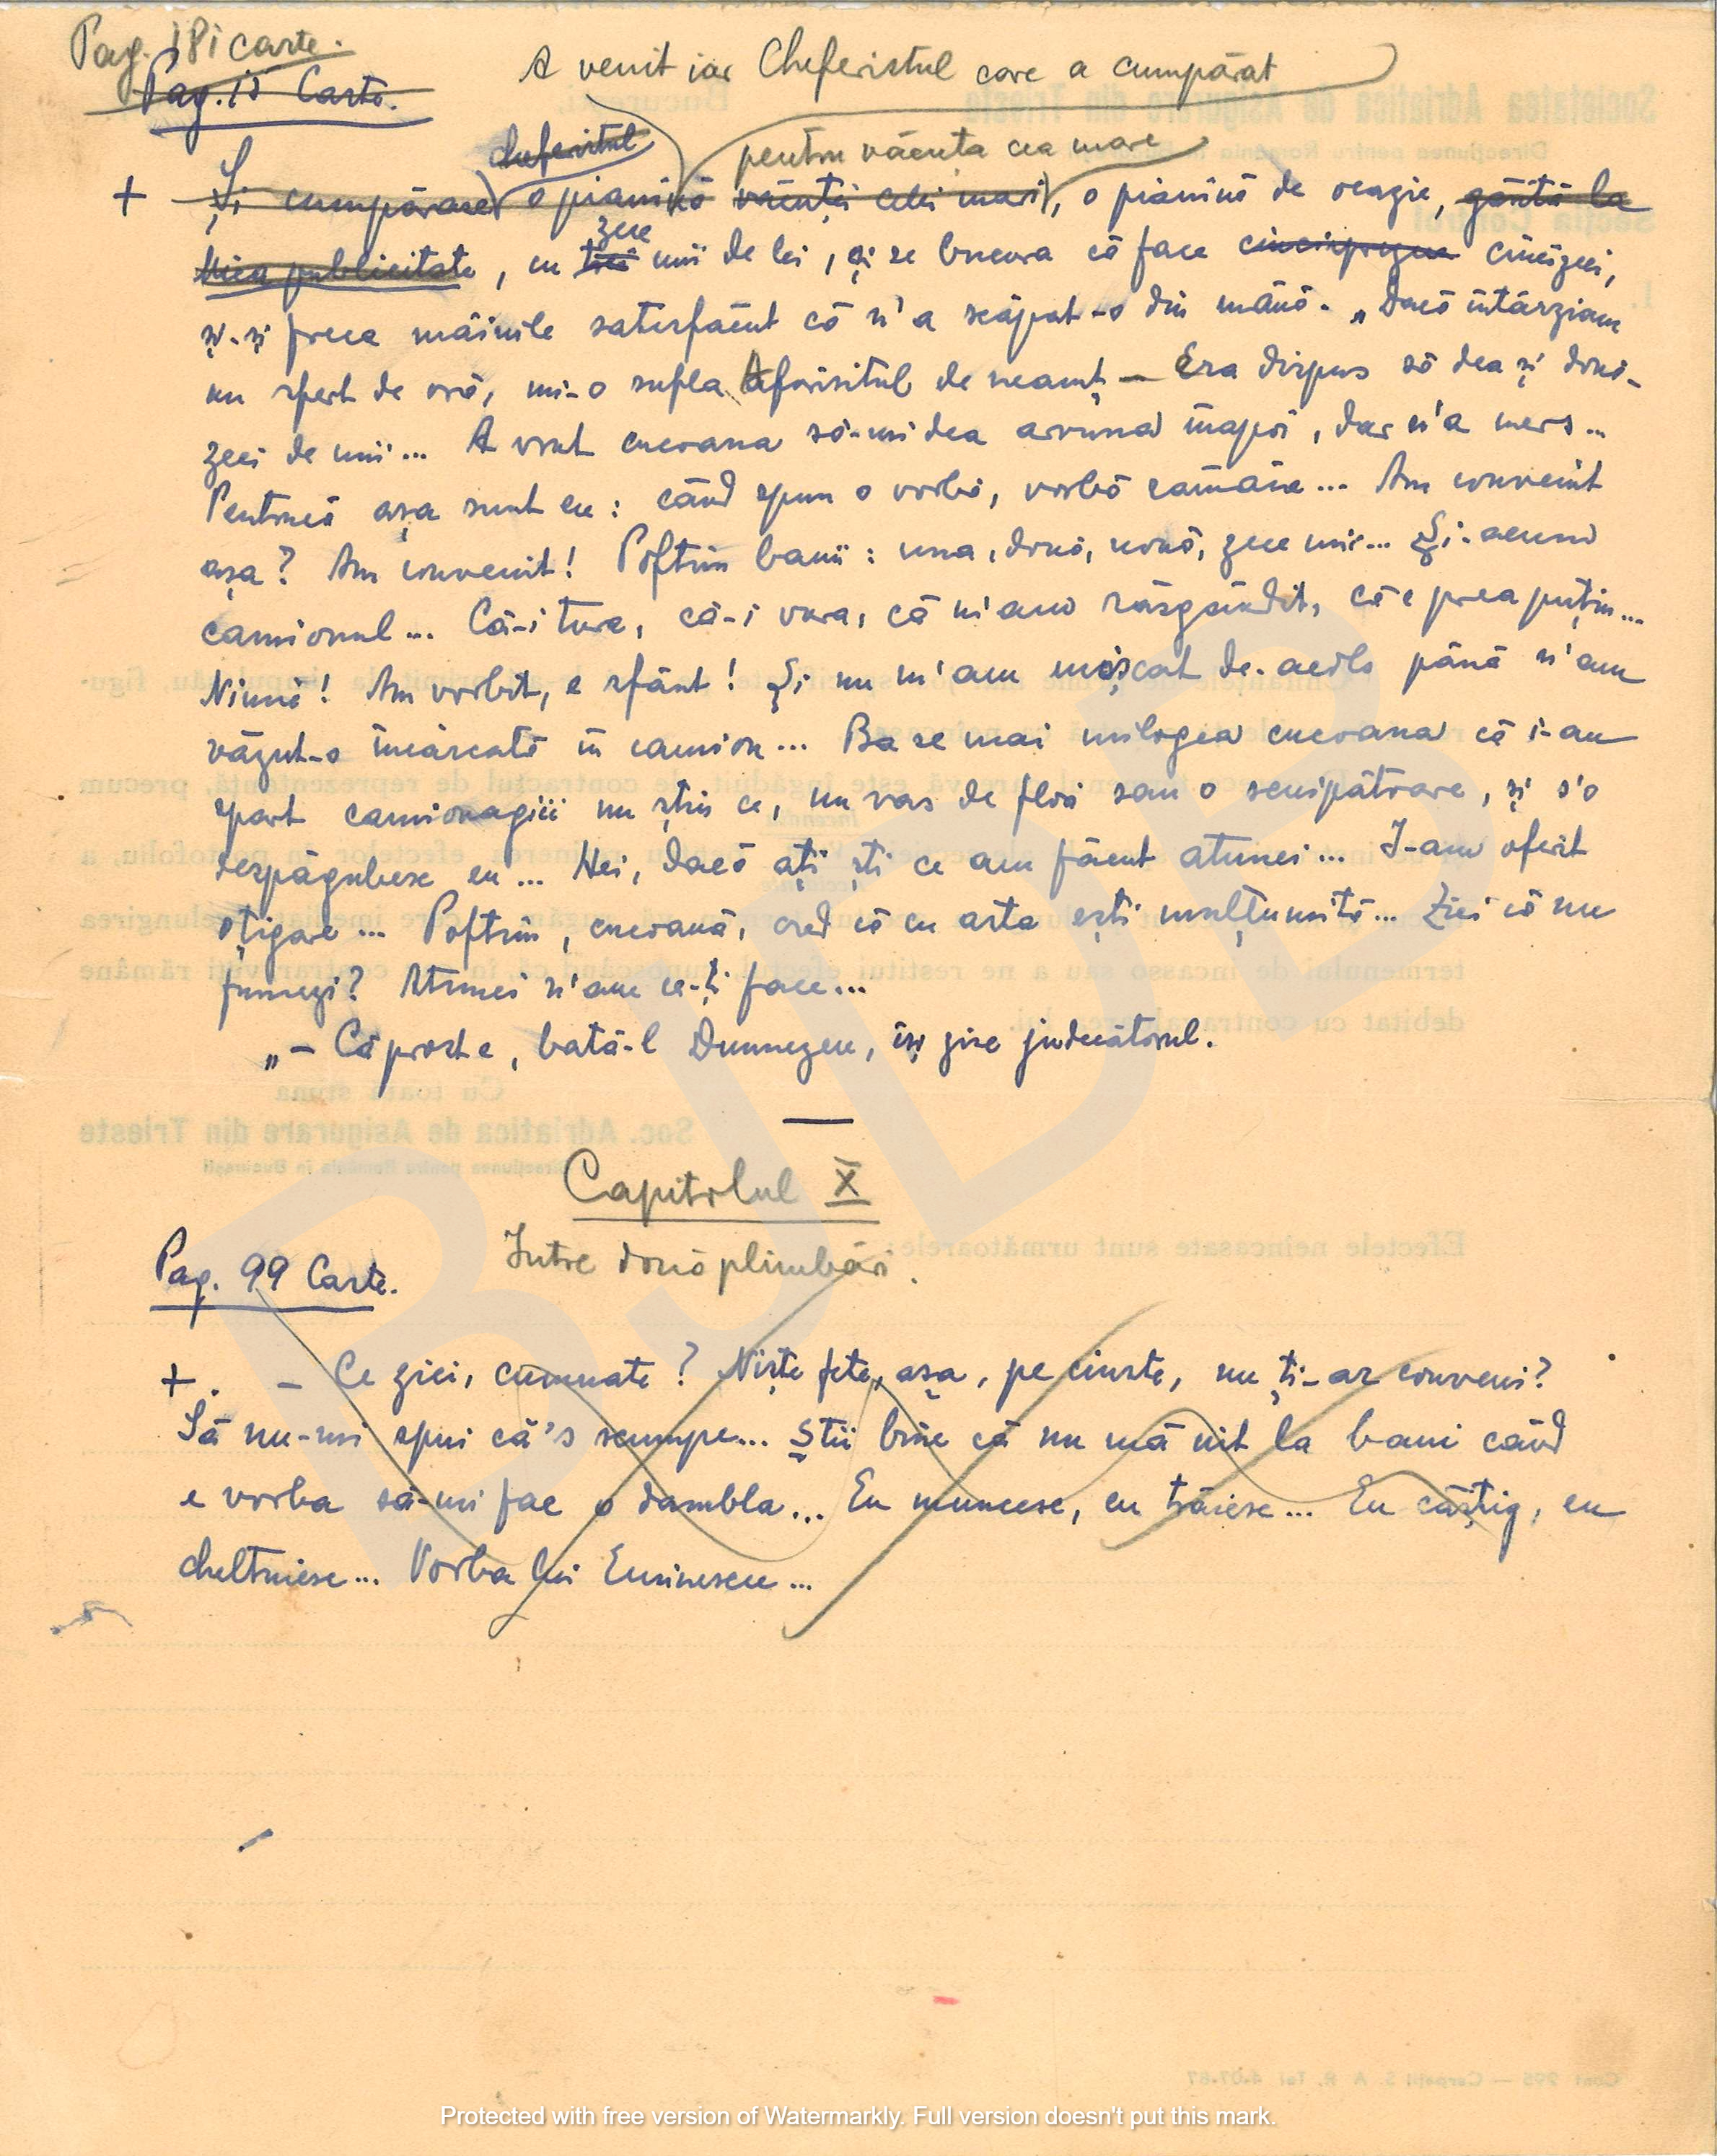 Pag. 181 carte.
Pag. 18 Carte.
A venit iar Cheferistul care a cumpărat
cheferistul
pentru văcuța cea mare
+ Și cumpărase o pianină văcuței celei mari, o pianină de ocazie, găsită la
Mica publicitate, cu trei zece mii de lei, și se bucura că face cincisprezece cincizeci,
și-și freca mâinile satisfăcut că n'a scăpat-o din mână. „Dacă întârziam
un sfert de oră, mi-o sufla Afurisitul de neamț — Era dispus să dea și două-
zeci de mii... A vrut cucoana să-mi dea arvuna înapoi, dar n'a mers...
Pentrucă așa sunt eu: când spun o vorbă, vorbă rămâne... Am convenit
așa? Am convenit! Poftim banii: una, două, nouă, zece mii... Și-acum
camionul... Că-i tura, că-i vura, că m'am răsgândit, că e prea puțin...
Nimic! Am vorbit, e sfânt! Și nu m'am mișcat de-acolo până n'am
văzut-o încărcată în camion... Ba se mai milogea cucoana că i-au
spart camionagiii nu știu ce, un vas de flori sau o scuipătoare, și s'o
despăgubesc eu... Hei, dacă ați ști ce am făcut atunci... I-am oferit
o țigare... Poftim, cucoană, cred că cu asta ești mulțumită... Zici că nu
fumezi? Atunci n'am ce-ți face...
„— Că prost e, bată-l Dumnezeu, își zise judecătorul.
Capitolul X
Între două plimbări.
Pag. 99 Carte.
+. — Ce zici, cumnate? Niște fete, așa, pe cinste, nu ți-ar conveni?
Să nu-mi spui că's scumpe... Știi bine că nu mă uit la bani când
e vorba să-mi fac o dambla... Eu muncesc, eu trăiesc... Eu câștig, eu
cheltuiesc... Vorba lui Eminescu...
Protected with free version of Watermarkly. Full version doesn't put this mark.